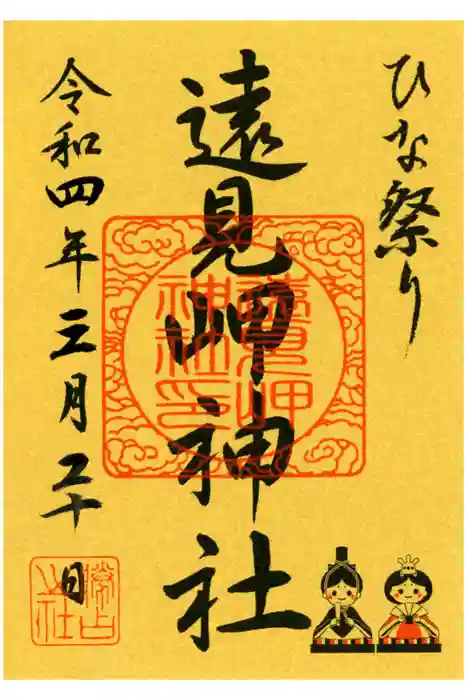 ひな祭り
遠見岬神社
遠見岬
神社印
令和四年三月二十日